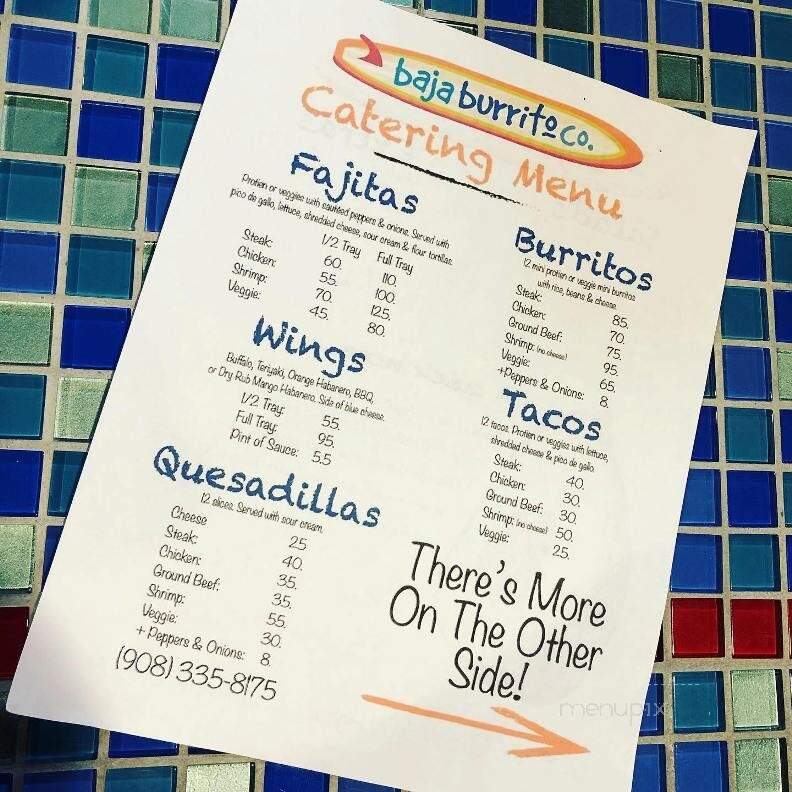 baja burrito co.
Catering Menu
Fajitas
Protien or veggies with sautéed peppers & onions. Served with
pico de gallo, lettuce, shredded cheese, sour cream & flour tortillas.
1/2 Tray Full Tray
Steak: 60. 110.
Chicken: 55. 100.
Shrimp: 70. 125.
Veggie: 45. 80.
Wings
Buffalo, Teriyaki, Orange Habanero, BBQ,
or Dry Rub Mango Habanero. Side of blue cheese.
1/2 Tray: 55.
Full Tray: 95.
Pint of Sauce: 5.5
Quesadillas
12 slices. Served with sour cream.
Cheese 25
Steak: 40.
Chicken: 35.
Ground Beef: 35.
Shrimp: 55.
Veggie: 30.
+ Peppers & Onions: 8.
(908) 335-8175
Burritos
12 mini protien or veggie mini burritos
with rice, beans & cheese.
Steak: 85.
Chicken: 70.
Ground Beef: 75.
Shrimp: (no cheese) 95.
Veggie: 65.
+Peppers & Onions: 8.
Tacos
12 tacos. Protien or veggies with lettuce,
shredded cheese & pico de gallo.
Steak: 40.
Chicken: 30.
Ground Beef: 30.
Shrimp: (no cheese) 50.
Veggie: 25.
There's More
On The Other
Side!
menupix